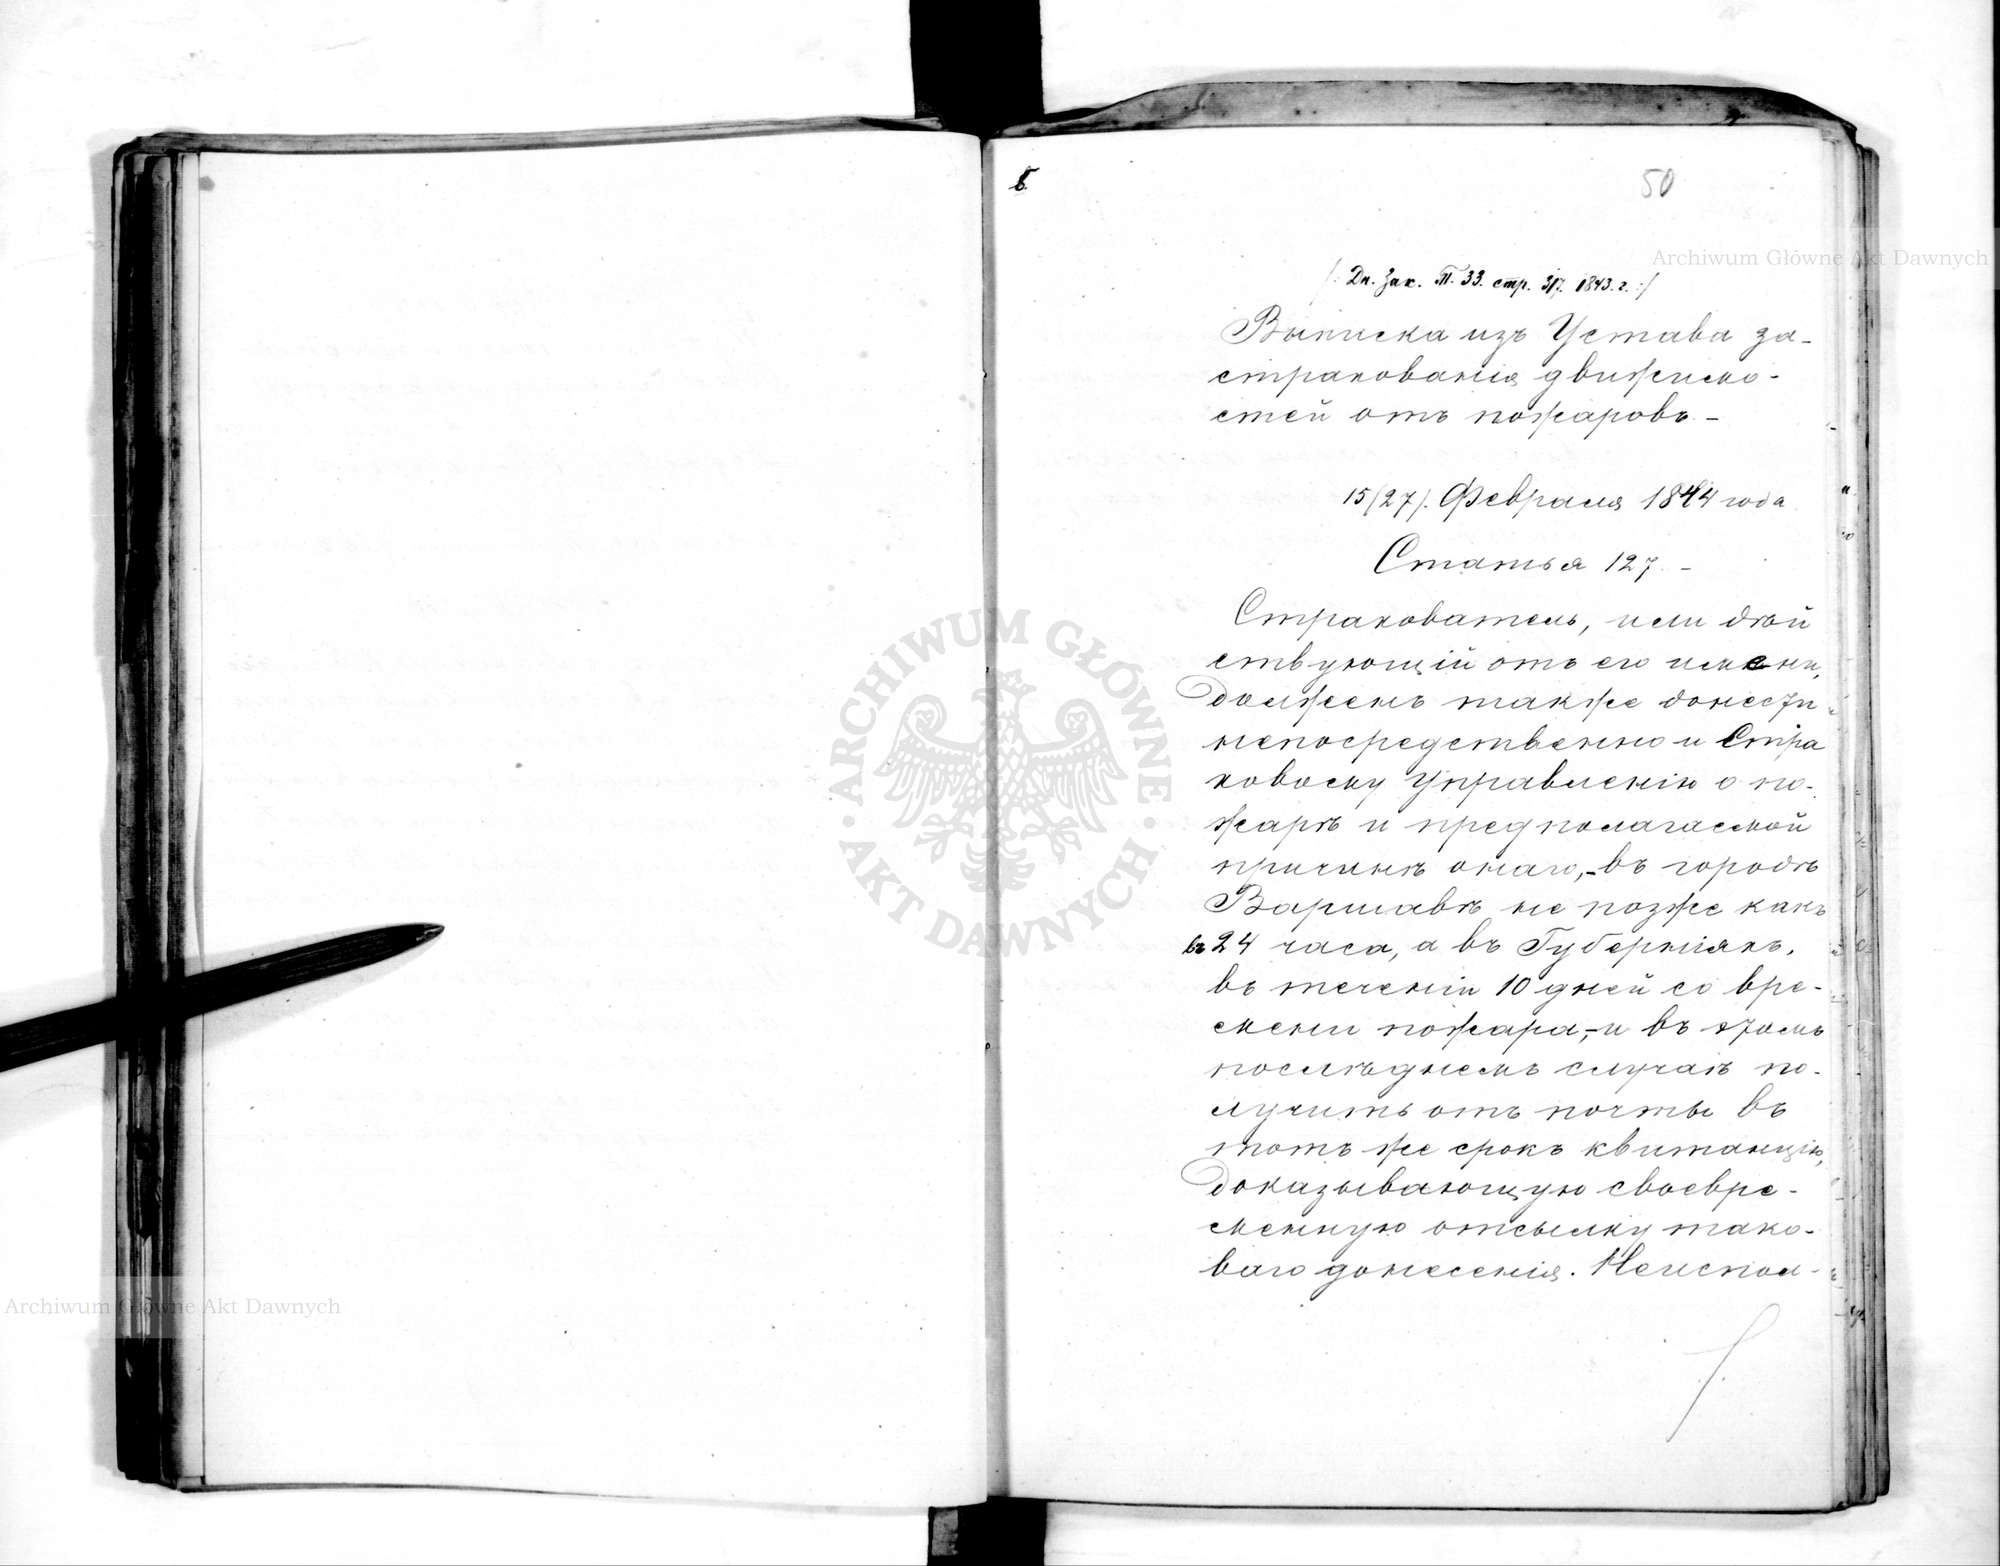 50
/: Дн. Зак. Т. 33. стр. 317. 1843. г. :/
Выписка изъ Устава за-
страхованія движимо-
стей отъ пожаровъ. -
15/27/. Февраля 1844 года
Статья 127. -
Страхователь, или дѣй
ствующій отъ его имени,
долженъ также донести
непосредственно и Стра
ховому Управленію о по-
жарѣ и предполагаемой
причинѣ онаго, - въ городѣ
Варшавѣ не позже какъ
въ 24 часа, а въ Губерніяхъ,
въ теченіи 10 дней со вре-
мени пожара, - и въ этомъ
послѣднемъ случаѣ по-
лучить отъ почты въ
тотъ же срокъ квитанцію,
доказывающую своевре-
менную отсылку тако-
ваго донесенія. Неиспол-
Archiwum Główne Akt Dawnych
Archiwum Główne Akt Dawnych
ARCHIWUM GŁÓWNE
· AKT DAWNYCH ·